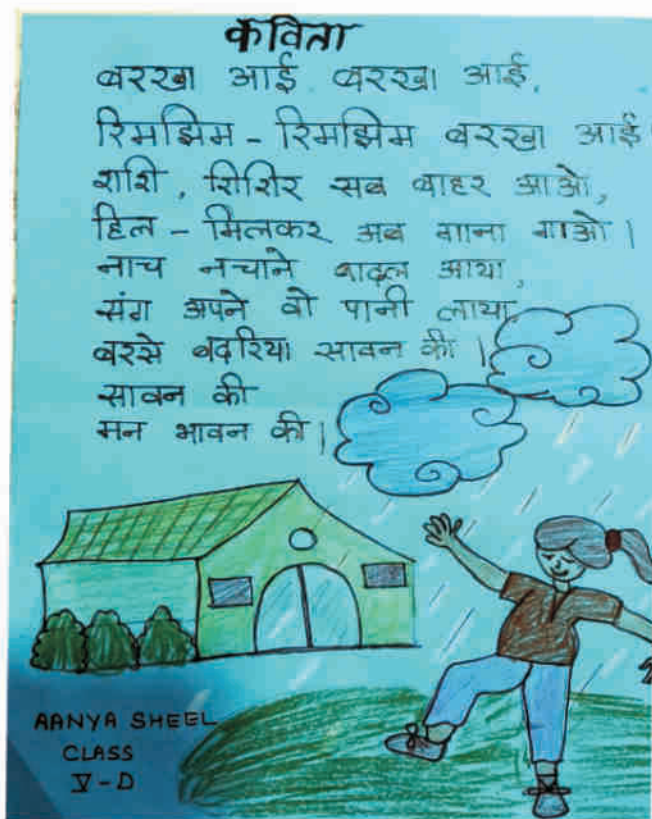 कविता
बरखा आई बरखा आई,
रिमझिम - रिमझिम बरखा आई
शशि, शिशिर सब बाहर आओ,
हिल - मिलकर अब गाना गाओ।
नाच नचाने बादल आया,
संग अपने वो पानी लाया,
बरसे बदरिया सावन की।
सावन की
मन भावन की।
AANYA SHEEL
CLASS
V-D